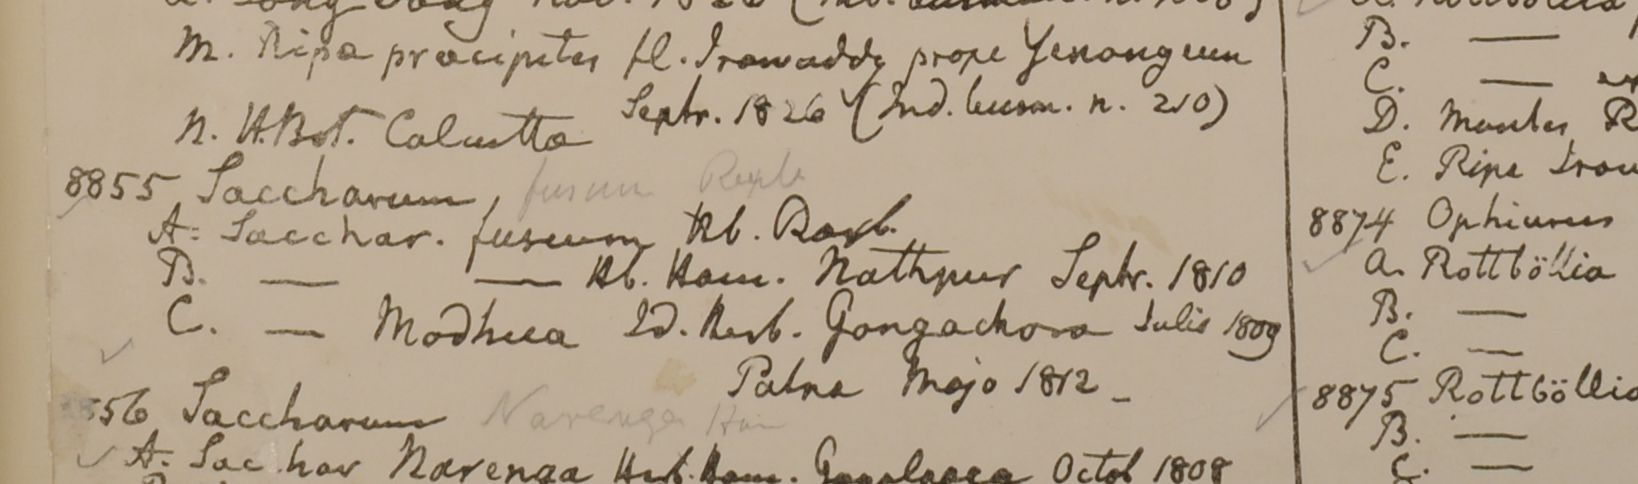 M. Ripa precipites fl. Irawaddy prope Yenangeun
Septr. 1826 (Ind. burm. n. 210)
N. H.Bot. Calcutta
8855 Saccharum, fuscum Roxb
A. Sacchar. fuscum Hb. Roxb.
B. — — Hb. Ham. Nathpur Septr. 1810
C. — Modhua Id. Herb. Gongachora Julis 1809
Patna Majo 1812 –
856 Saccharum Narenga Ham
A. Sac.har Narenga Herb. Ham. Octob 1808
B. —
C. —
D. Montes
E. Ripa Iraw
8874 Ophiurus
a. Rottböllia
B. —
C. —
8875 Rottböllia
B. —
C. —